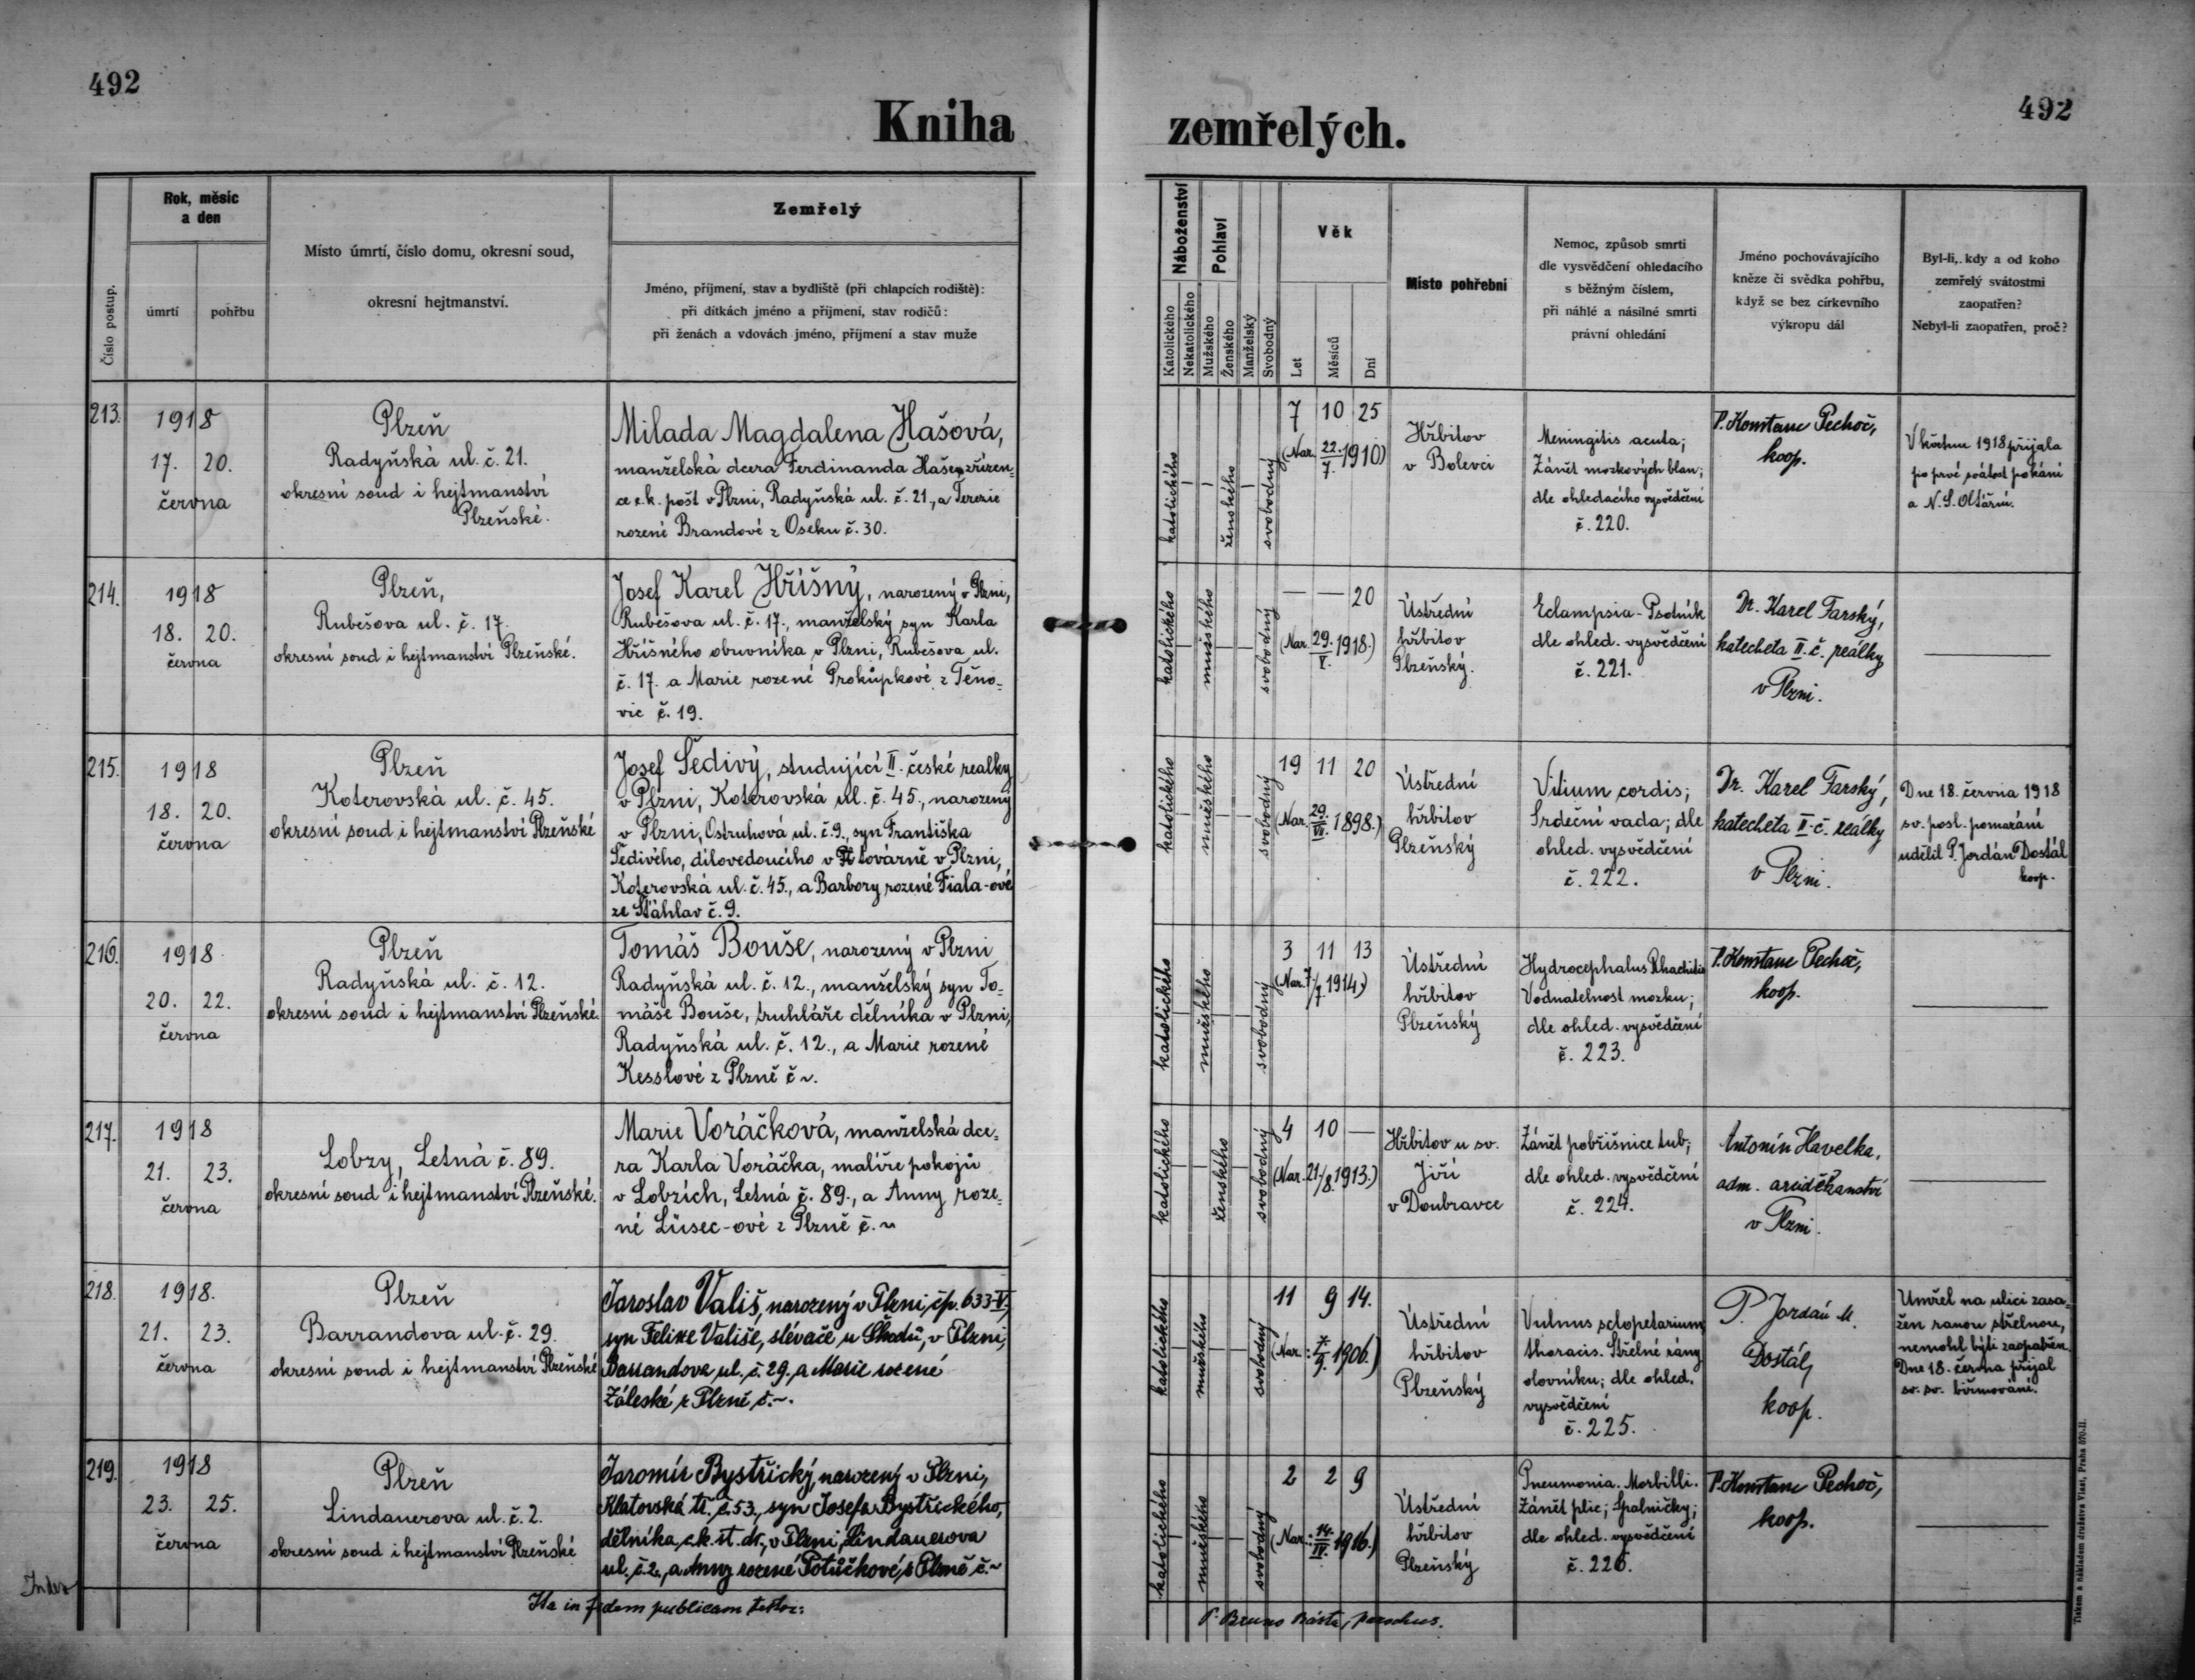 492
492
Kniha zemřelých.
Číslo postup.
Rok, měsíc
a den
úmrtí
pohřbu
Místo úmrtí, číslo domu, okresní soud,
okresní hejtmanství.
Zemřelý
Jméno, příjmení, stav a bydliště (při chlapcích rodiště):
při dítkách jméno a příjmení, stav rodičů:
při ženách a vdovách jméno, příjmení a stav muže
Náboženství
Katolického
Nekatolického
Pohlaví
Mužského
Ženského
Manželský
Svobodný
Věk
Let
Měsíců
Dní
Místo pohřební
Nemoc, způsob smrti
dle vysvědčení ohledacího
s běžným číslem,
při náhlé a násilné smrti
právní ohledání
Jméno pochovávajícího
kněze či svědka pohřbu,
když se bez církevního
výkropu dál
Byl-li, kdy a od koho
zemřelý svátostmi
zaopatřen?
Nebyl-li zaopatřen, proč?
213.
1918
17. 20.
června
Plzeň
Radyňská ul. č. 21.
okresní soud i hejtmanství
Plzeňské.
Milada Magdalena Hašová,
manželská dcera Ferdinanda Haše, zřízen-
ce c.k. pošt v Plzni, Radyňská ul. č. 21., a Terezie
rozené Brandové z Oseku č. 30.
katolického
ženského
svobodný
7 10 25
(Nar. 22./7. 1910)
Hřbitov
v Bolevci
Meningitis acuta;
Zánět mozkových blan;
dle ohledacího vysvědčení
č. 220.
P. Konstanc Pechoč,
koop.
V květnu 1918 přijala
po prvé svátost pokání
a N. S. Oltářní.
214.
1918
18. 20.
června
Plzeň,
Rubešova ul. č. 17.
okresní soud i hejtmanství Plzeňské.
Josef Karel Hříšný, narozený v Plzni,
Rubešova ul. č. 17., manželský syn Karla
Hříšného obuvníka v Plzni, Rubešova ul.
č. 17. a Marie rozené Prokůpkové z Těno-
vic č. 19.
katolického
mužského
svobodný
— — 20
(Nar. 29./V. 1918.)
Ústřední
hřbitov
Plzeňský.
Eclampsia - Psotník
dle ohled. vysvědčení
č. 221.
Dr. Karel Farský,
katecheta II. č. reálky
v Plzni.
215.
1918
18. 20.
června
Plzeň
Koterovská ul. č. 45.
okresní soud i hejtmanství Plzeňské
Josef Šedivý, studující II. české realky
v Plzni, Koterovská ul. č. 45., narozený
v Plzni, Ostruhová ul. č. 9., syn Františka
Šedivého, dílovedoucího v továrně v Plzni,
Koterovská ul. č. 45., a Barbory rozené Fiala-ové
ze Šťáhlav č. 9.
katolického
mužského
svobodný
19 11 20
(Nar. 29./VI. 1898.)
Ústřední
hřbitov
Plzeňský
Vitium cordis;
Srdeční vada; dle
ohled. vysvědčení
č. 222.
Dr. Karel Farský,
katecheta II. č. reálky
v Plzni.
Dne 18. června 1918
sv. posl. pomazání
udělil P. Jordán Dostál
koop.
216.
1918
20. 22.
června
Plzeň
Radyňská ul. č. 12.
okresní soud i hejtmanství Plzeňské.
Tomáš Bouše, narozený v Plzni
Radyňská ul. č. 12., manželský syn To-
máše Bouše, truhláře dělníka v Plzni,
Radyňská ul. č. 12., a Marie rozené
Kesslové z Plzně č ~.
katolického
mužského
svobodný
3 11 13
(Nar. 7/7. 1914.)
Ústřední
hřbitov
Plzeňský
Hydrocephalus Rhachitis
Vodnatelnost mozku;
dle ohled. vysvědčení
č. 223.
P. Konstanc Pechoč,
koop.
217.
1918
21. 23.
června
Lobzy, Letná č. 89.
okresní soud i hejtmanství Plzeňské.
Marie Voráčková, manželská dce-
ra Karla Voráčka, malíře pokojů
v Lobzích, Letná č. 89., a Anny roze-
né Lüsec-ové z Plzně č. ~
katolického
ženského
svobodný
4 10 —
(Nar. 21/8. 1913.)
Hřbitov u sv.
Jiří
v Doubravce
Zánět pobřišnice tub;
dle ohled. vysvědčení
č. 224.
Antonín Havelka,
adm. arciděkanství
v Plzni.
218.
1918.
21. 23.
června
Plzeň
Barrandova ul. č. 29.
okresní soud i hejtmanství Plzeňské
Jaroslav Vališ, narozený v Plzni, čp. 633-V.,
syn Felixe Vališe, slévače u Škodů, v Plzni,
Barrandova ul. č. 29. a Marie rozené
Záleské z Plzně č. ~.
katolického
mužského
svobodný
11 9 14.
(Nar. : 7./9. 1906.)
Ústřední
hřbitov
Plzeňský
Vulnus sclopetarium
thoracis. Střelné rány
olovníku; dle ohled.
vysvědčení
č. 225.
P. Jordán M.
Dostál,
koop.
Umřel na ulici zasa-
žen ranou střelnou,
nemohl býti zaopatřen.
Dne 18. června přijal
sv. sv. biřmování.
219.
1918
23. 25.
června
Plzeň
Lindauerova ul. č. 2.
okresní soud i hejtmanství Plzeňské
Jaromír Bystřický, narozený v Plzni,
Klatovská tř. č. 53., syn Josefa Bystřického,
dělníka c.k. st. dr., v Plzni, Lindauerova
ul. č. 2., a Anny rozené Potůčkové, z Plzně č. ~
katolického
mužského
svobodný
2 2 9
(Nar. : 14./IV. 1916.)
Ústřední
hřbitov
Plzeňský
Pneumonia. Morbilli.
Zánět plic; Spalničky;
dle ohled. vysvědčení
č. 226.
P. Konstanc Pechoč,
koop.
Index
Ita in fidem publicam testor:
P. Bruno Bárta, parochus.
Tiskem a nákladem družstva Vlast, Praha 570-II.